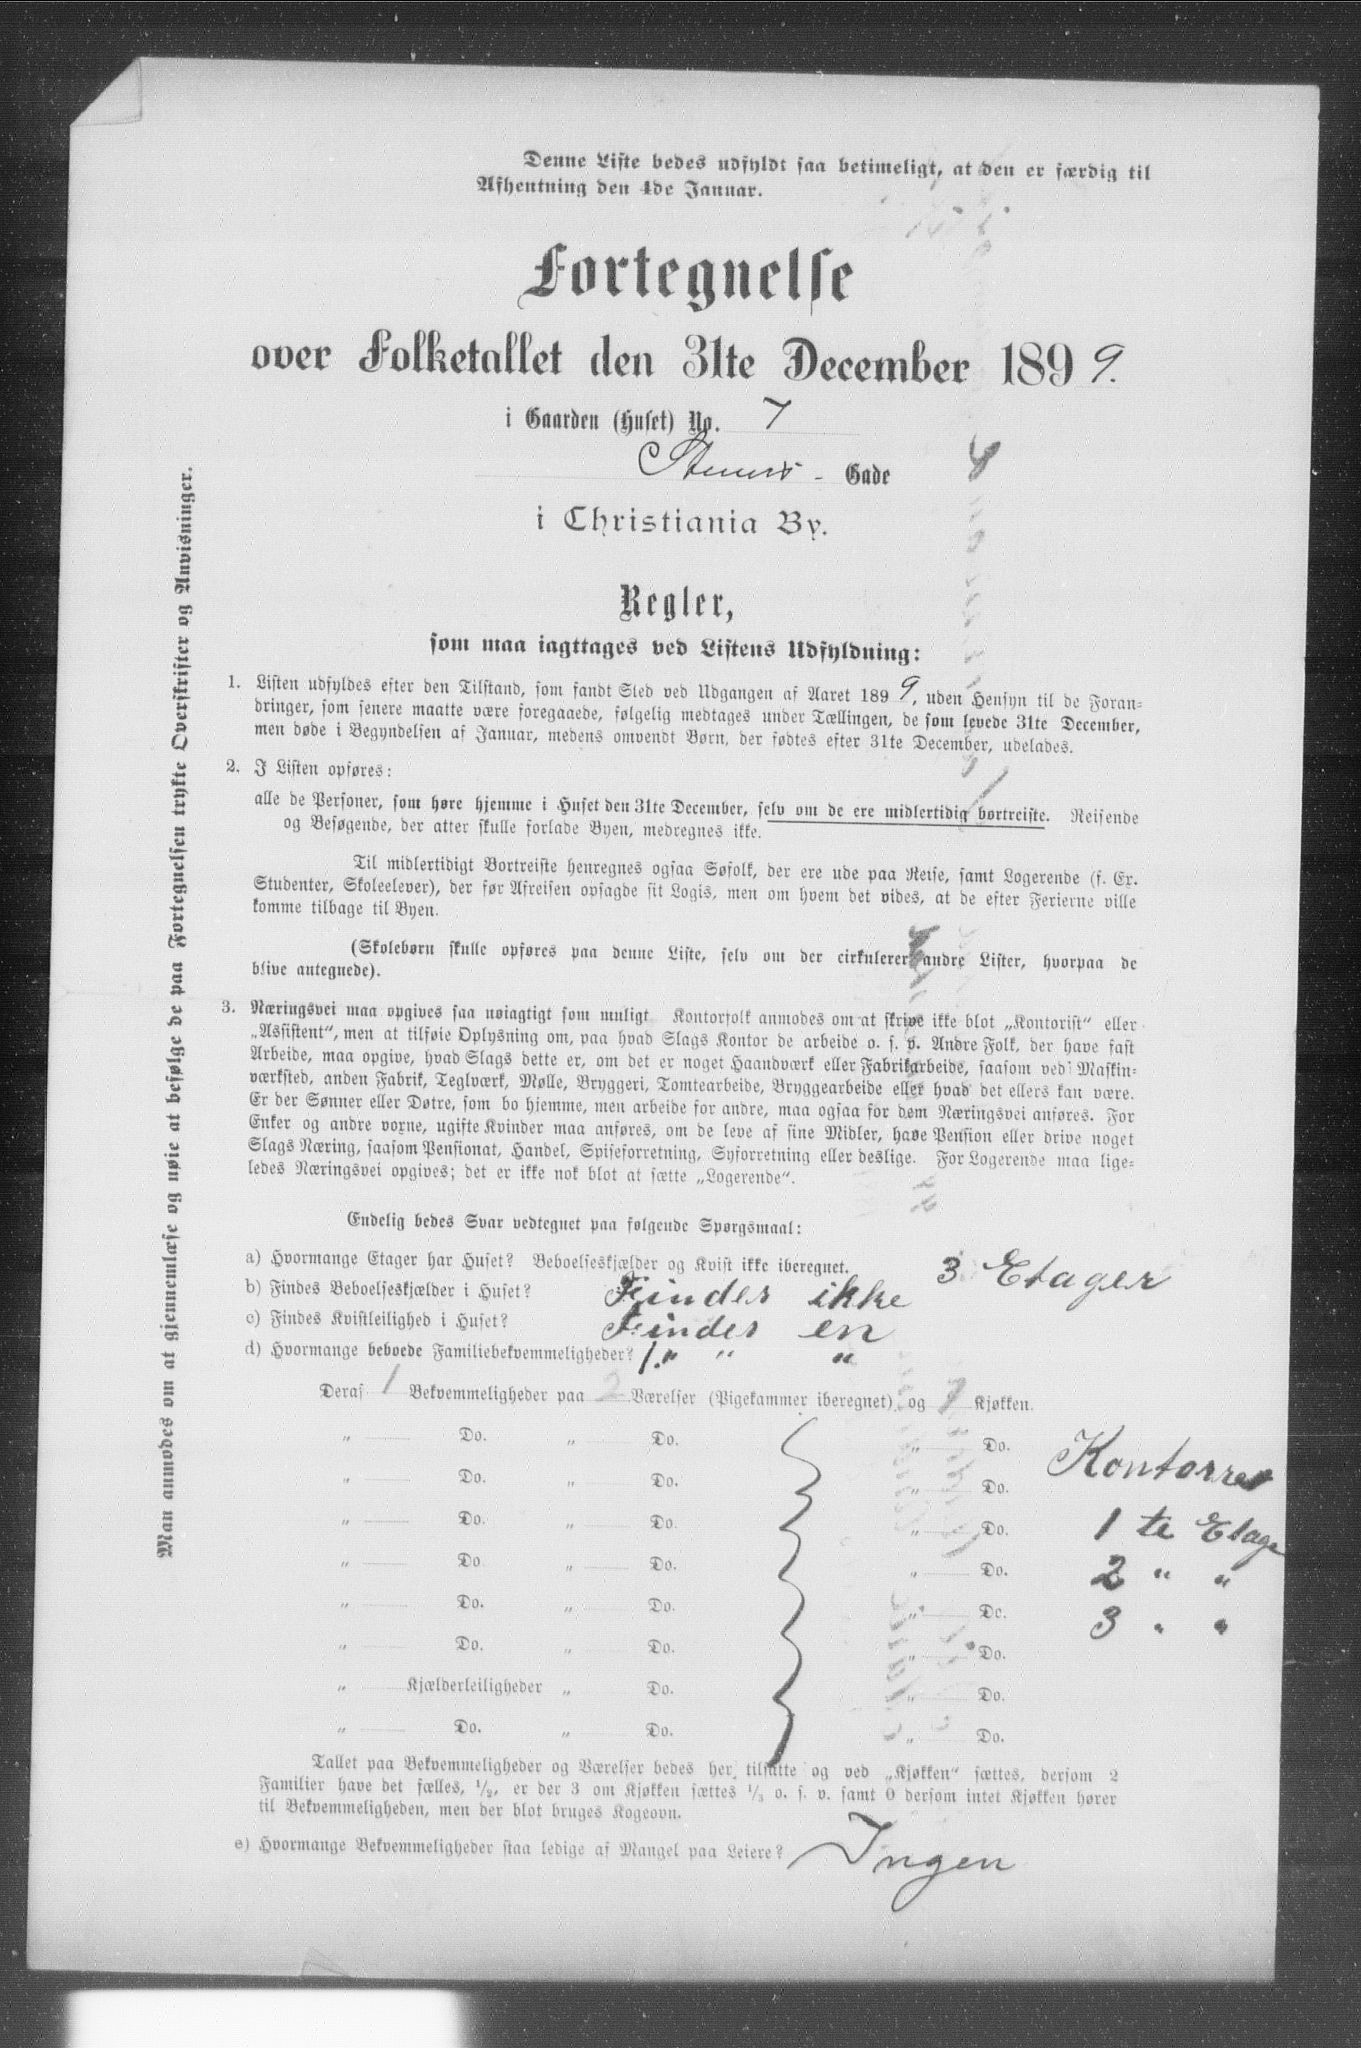 Denne Liste bedes udfyldt saa betimeligt, at den er færdig til
Afhentning den 4de Januar.
Fortegnelse
over Folketallet den 31te December 1899.
i Gaarden (Huset) No. 7
Steners - Gade
i Christiania By.
Regler,
som maa iagttages ved Listens Udfyldning:
1. Listen udfyldes efter den Tilstand, som fandt Sted ved Udgangen af Aaret 1899, uden Hensyn til de Foran-
dringer, som senere maatte være foregaaede, følgelig medtages under Tællingen, de som levede 31te December,
men døde i Begyndelsen af Januar, medens omvendt Børn, der fødtes efter 31te December, udelades.
2. I Listen opføres:
alle de Personer, som høre hjemme i Huset den 31te December, selv om de ere midlertidig bortreiste. Reisende
og Besøgende, der atter skulle forlade Byen, medregnes ikke.
Til midlertidigt Bortreiste henregnes ogsaa Søfolk, der ere ude paa Reise, samt Logerende (f. Ex.
Studenter, Skoleelever), der før Afreisen opsagde sit Logis, men om hvem det vides, at de efter Ferierne ville
komme tilbage til Byen.
(Skolebørn skulle opføres paa denne Liste, selv om der cirkulerer andre Lister, hvorpaa de
blive antegnede).
3. Næringsvei maa opgives saa nøiagtigt som muligt. Kontorfolk anmodes om at skrive ikke blot „Kontorist“ eller
„Assistent“, men at tilføie Oplysning om, paa hvad Slags Kontor de arbeide o. s. v. Andre Folk, der have fast
Arbeide, maa opgive, hvad Slags dette er, om det er noget Haandværk eller Fabrikarbeide, saasom ved Maskin-
værksted, anden Fabrik, Teglværk, Mølle, Bryggeri, Tomtearbeide, Bryggearbeide eller hvad det ellers kan være.
Er der Sønner eller Døtre, som bo hjemme, men arbeide for andre, maa ogsaa for dem Næringsvei anføres. For
Enker og andre voxne, ugifte Kvinder maa anføres, om de leve af sine Midler, have Pension eller drive noget
Slags Næring, saasom Pensionat, Handel, Spiseforretning, Syforretning eller deslige. For Logerende maa lige-
ledes Næringsvei opgives; det er ikke nok blot at sætte „Logerende“.
Endelig bedes Svar vedtegnet paa følgende Spørgsmaal:
a) Hvormange Etager har Huset? Beboelseskjælder og Kvist ikke iberegnet. 3 Etager
b) Findes Beboelseskjælder i Huset? Findes ikke
c) Findes Kvistleilighed i Huset? Findes en
d) Hvormange beboede Familiebekvemmeligheder? 1. " " "
Deraf 1 Bekvemmeligheder paa 2 Værelser (Pigekammer iberegnet) og 1 Kjøkken.
„ Do. „ Do. „ Do. Kontorer
„ Do. „ Do. „ Do.
„ Do. „ Do. „ Do. 1 te Etage
„ Do „ Do. „ Do. 2 " "
„ Do. „ Do. „ Do. 3 " "
„ Do. „ Do. „ Do.
„ Kjælderleiligheder „ Do. „ Do.
„ Do. „ Do. „ Do.
Tallet paa Bekvemmeligheder og Værelser bedes her tilsatte og ved „Kjøkken“ sættes, dersom 2
Familier have det fælles, ½, er der 3 om Kjøkken sættes ⅓ o. s. v. samt 0 dersom intet Kjøkken hører
til Bekvemmeligheden, men der blot bruges Kogeovn.
e) Hvormange Bekvemmeligheder staa ledige af Mangel paa Leiere? Ingen
Man anmodes om at gjennemlæse og nøie at befølge de paa Fortegnelsen trykte Overskrifter og Anvisninger.